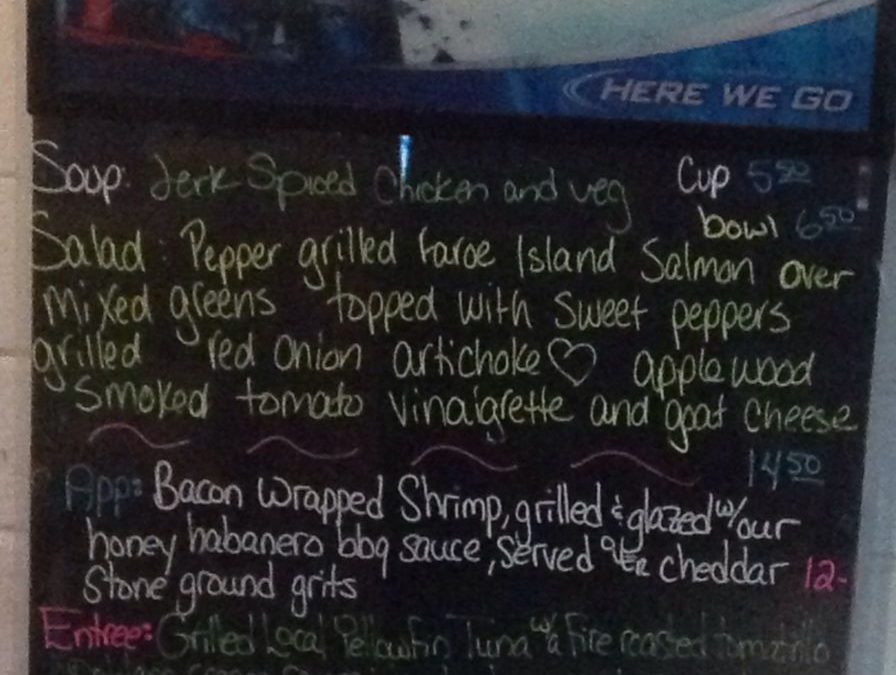 HERE WE GO
Soup: Jerk Spiced Chicken and veg Cup 5.50
bowl 6.50
Salad: Pepper grilled Faroe Island Salmon over
mixed greens topped with sweet peppers
grilled red onion artichoke♡ applewood
smoked tomato vinaigrette and goat cheese
14.50
App: Bacon Wrapped Shrimp, grilled & glazed w/ our
honey habanero bbq sauce, served over cheddar 12-
Stone ground grits
Entree: Grilled Local Yellowfin Tuna w/ a Fire roasted tomatillo